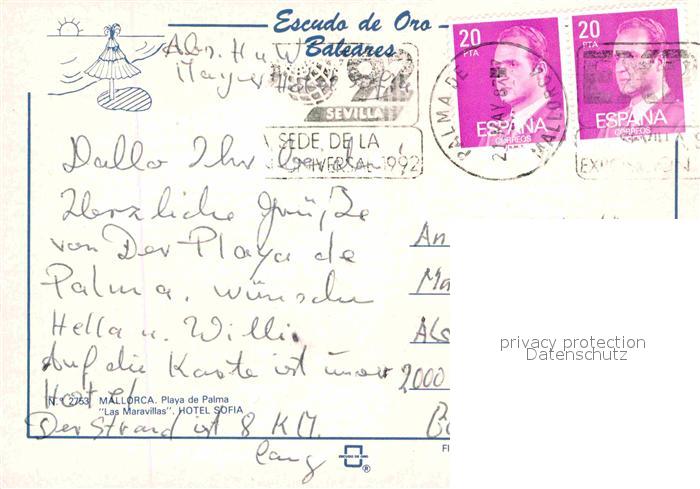 Escudo de Oro
Baleares
Abs. H u W
Mayer
20
PTA
ESPAÑA
CORREOS
20
PTA
ESPAÑA
CORREOS
92
SEVILLA
SEDE DE LA
UNIVERSAL 1992
PALMA DE MALLORCA
MAY
Hallo Ihr Lieben!
Herzliche Grüße
von Der Playa de
Palma, wünschen
Hella u. Willi.
Auf die Karte ist unser
Hotel
Der Strand ist 8 KM.
lang
An
2000
N.º 2753 MALLORCA. Playa de Palma
"Las Maravillas". HOTEL SOFIA
ESCUDO DE ORO
®
privacy protection
Datenschutz